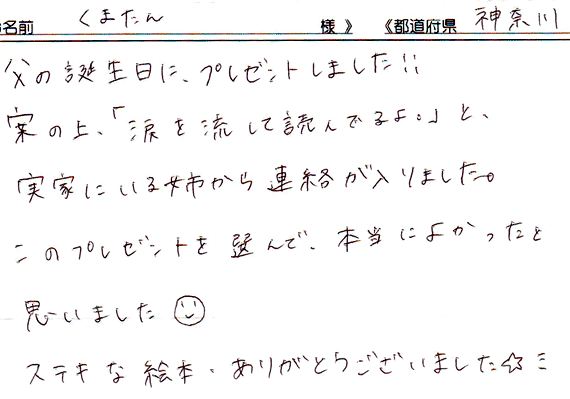 お名前 くまたん 様 》 《都道府県 神奈川
父の誕生日に、プレゼントしました!!
案の上、「涙を流して読んでるよ。」と、
実家にいる姉から連絡が入りました。
このプレゼントを選んで、本当によかったと
思いました
ステキな絵本、ありがとうございました☆ミ